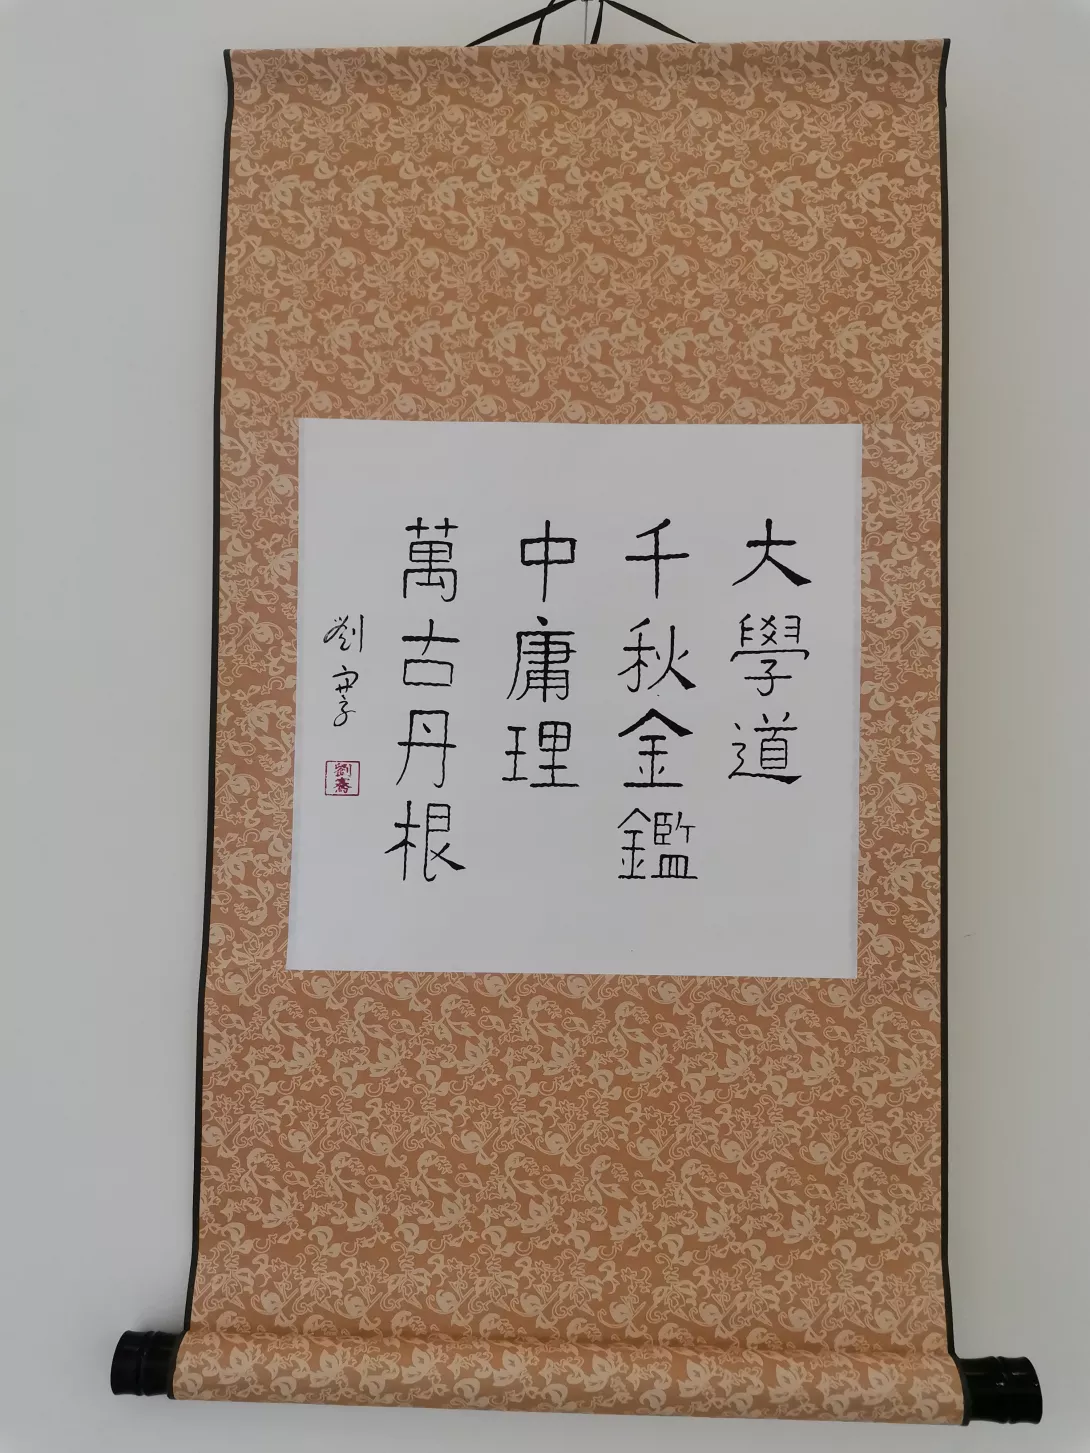 大學道
千秋金鑑
中庸理
萬古丹根
劉
劉